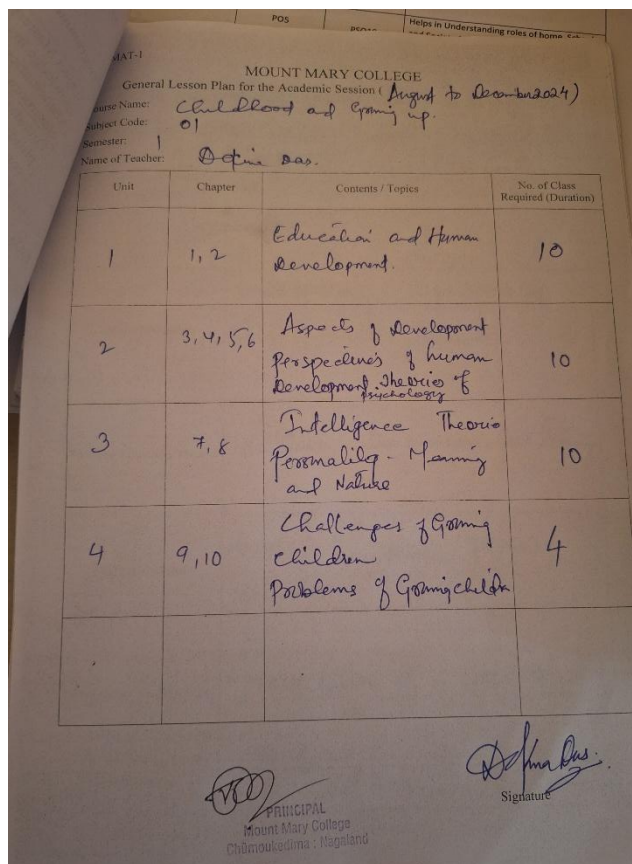 POS
Helps in Understanding roles of home,
MAT-1
MOUNT MARY COLLEGE
General Lesson Plan for the Academic Session (August to December 2024)
Name: Childhood and Growing up.
Subject Code: 01
Semester: 1
Name of Teacher: Das.
Unit Chapter Contents / Topics No. of Class
Required (Duration)
1 1, 2 Education and Human
Development. 10
2 3, 4, 5, 6 Aspects of Development
Perspectives of human
Development. Theories of
psychology 10
3 7, 8 Intelligence Theorie
Personality - Meaning
and Nature 10
4 9, 10 Challenges of Growing
children
Problems of Growing childn 4
Das.
Signature
PRINCIPAL
Mount Mary College
Chümoukedima : Nagaland